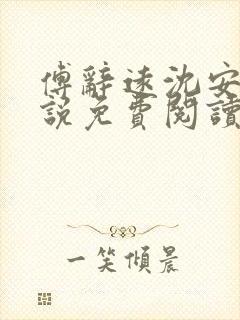 傅辭遠沈安
說免費閱讀
一笑傾晨